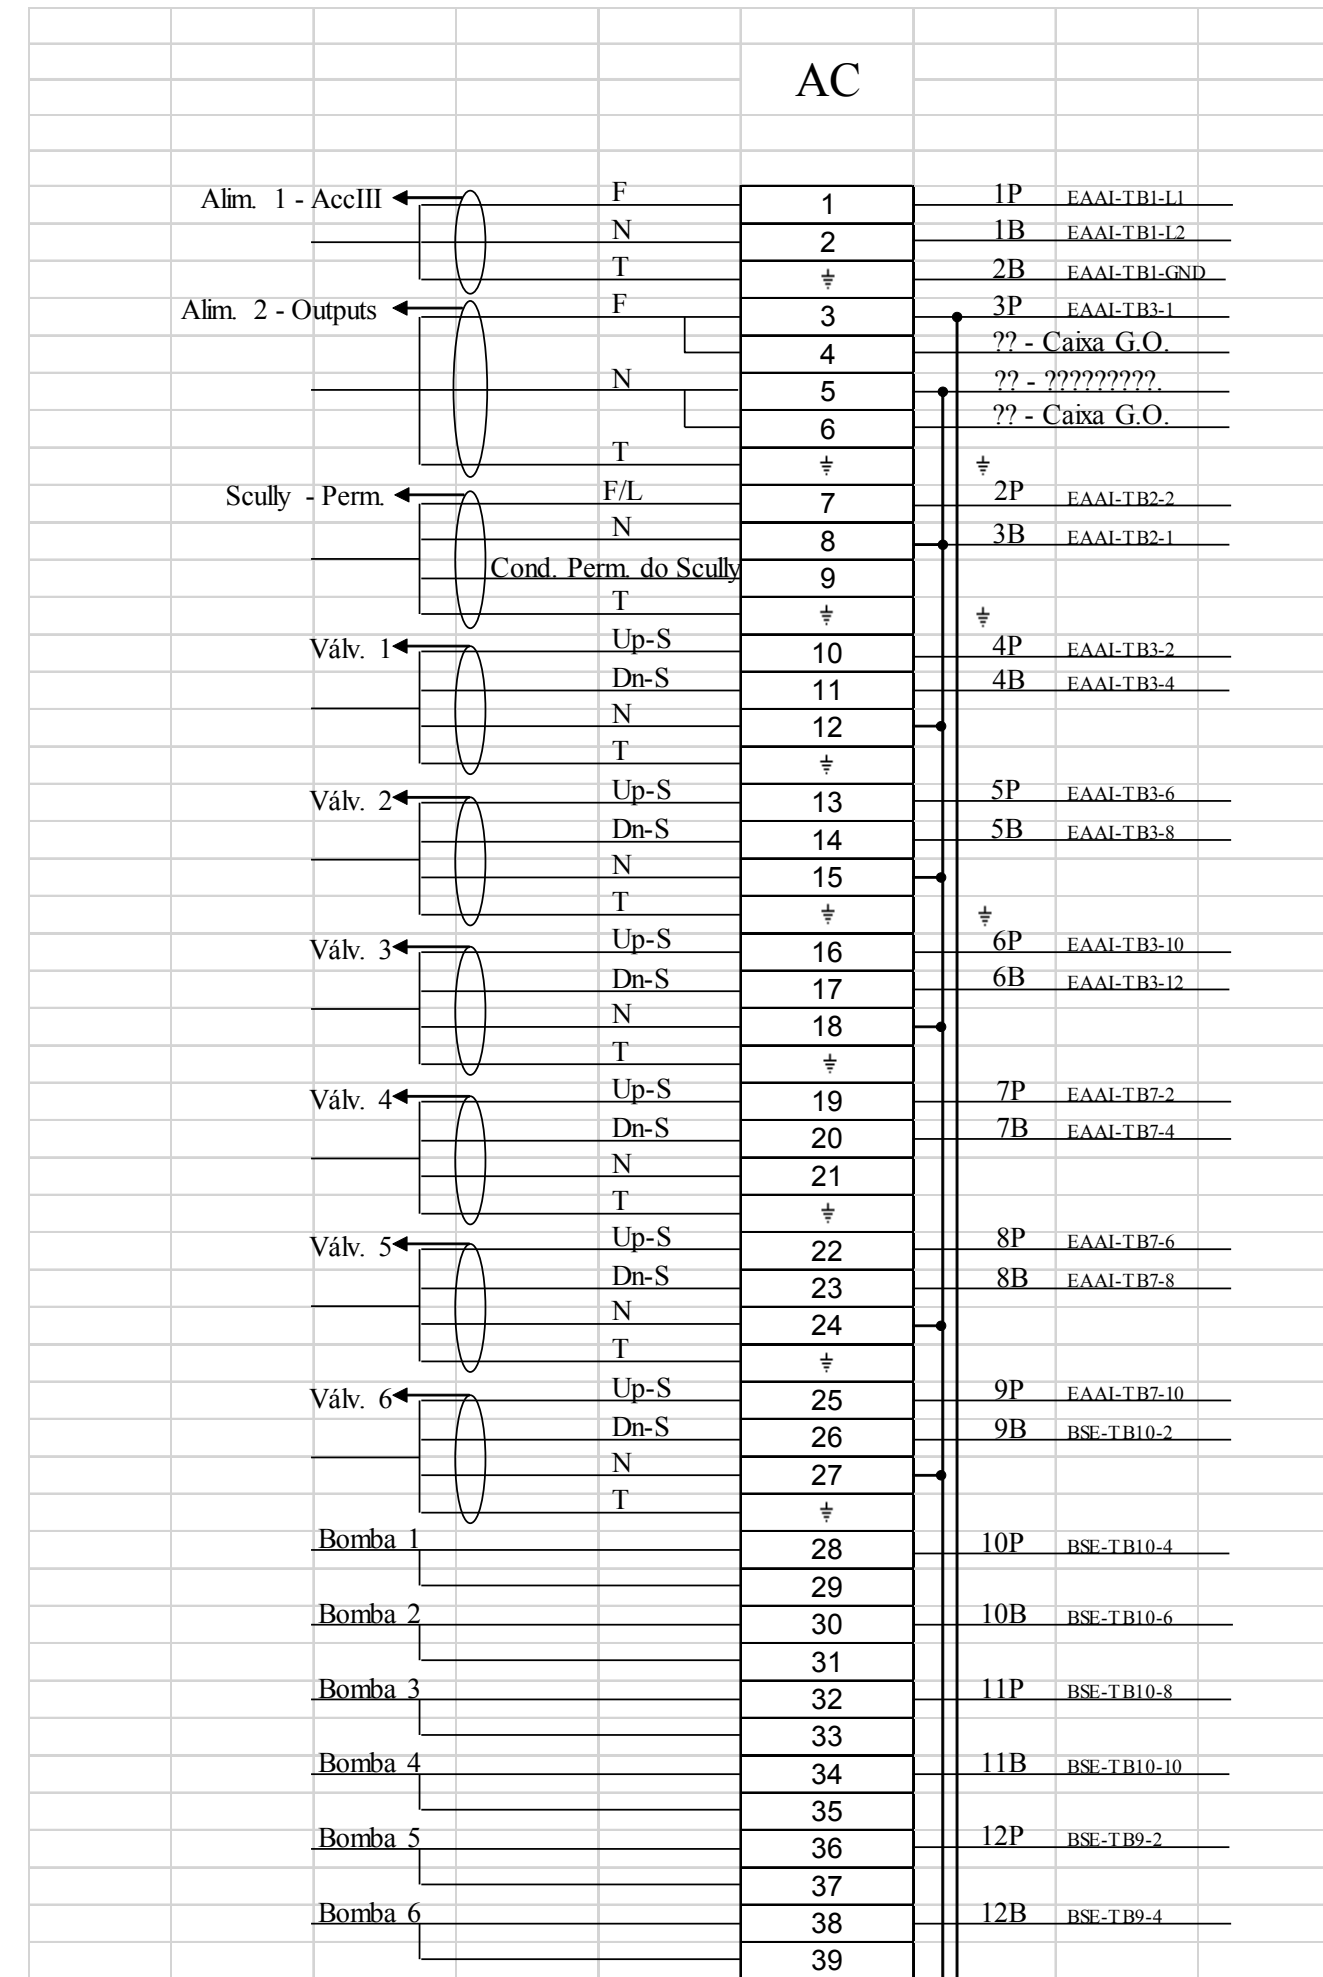 AC
Alim. 1 - AccIII F 1 1P EAAI-TB1-L1
N 2 1B EAAI-TB1-L2
T 2B EAAI-TB1-GND
Alim. 2 - Outputs F 3 3P EAAI-TB3-1
4 ?? - Caixa G.O.
N 5 ?? - ?????????.
6 ?? - Caixa G.O.
T
Scully - Perm. F/L 7 2P EAAI-TB2-2
N 8 3B EAAI-TB2-1
Cond. Perm. do Scully 9
T
Válv. 1 Up-S 10 4P EAAI-TB3-2
Dn-S 11 4B EAAI-TB3-4
N 12
T
Válv. 2 Up-S 13 5P EAAI-TB3-6
Dn-S 14 5B EAAI-TB3-8
N 15
T
Válv. 3 Up-S 16 6P EAAI-TB3-10
Dn-S 17 6B EAAI-TB3-12
N 18
T
Válv. 4 Up-S 19 7P EAAI-TB7-2
Dn-S 20 7B EAAI-TB7-4
N 21
T
Válv. 5 Up-S 22 8P EAAI-TB7-6
Dn-S 23 8B EAAI-TB7-8
N 24
T
Válv. 6 Up-S 25 9P EAAI-TB7-10
Dn-S 26 9B BSE-TB10-2
N 27
T
Bomba 1 28 10P BSE-TB10-4
29
Bomba 2 30 10B BSE-TB10-6
31
Bomba 3 32 11P BSE-TB10-8
33
Bomba 4 34 11B BSE-TB10-10
35
Bomba 5 36 12P BSE-TB9-2
37
Bomba 6 38 12B BSE-TB9-4
39